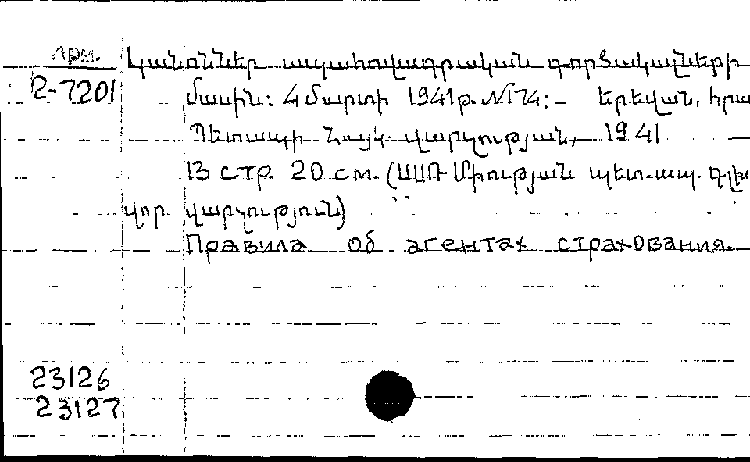 Арм.
2-7201
Կանոններ ապահովագրական գործակալների
մասին: 4 մարտի 1941թ. №174: – Երեվան, հրա
Պետապի Հայկ. վարչության, 1941
13 стр. 20 см. (ՍՍՌ Միության պետ.ապ. գլխ
վոր վարչություն)
Правила об агентах страхования.
23126
23127